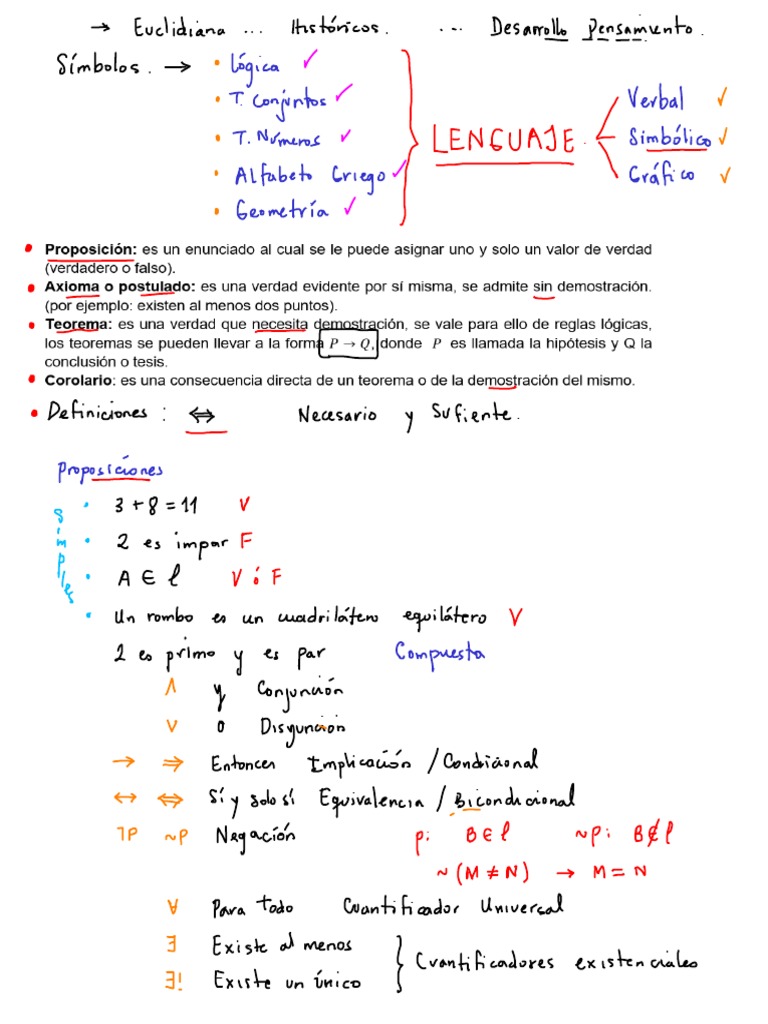 → Euclidiana ... Históricos. ... Desarrollo Pensamiento.
Símbolos. → • Lógica ✓
• T. Conjuntos ✓
• T. Números ✓
• Alfabeto Griego ✓
• Geometría ✓
LENGUAJE.
Verbal ✓
Simbólico ✓
Gráfico ✓
• Proposición: es un enunciado al cual se le puede asignar uno y solo un valor de verdad
(verdadero o falso).
• Axioma o postulado: es una verdad evidente por sí misma, se admite sin demostración.
(por ejemplo: existen al menos dos puntos).
• Teorema: es una verdad que necesita demostración, se vale para ello de reglas lógicas,
los teoremas se pueden llevar a la forma P → Q, donde P es llamada la hipótesis y Q la
conclusión o tesis.
• Corolario: es una consecuencia directa de un teorema o de la demostración del mismo.
• Definiciones: ⇔ Necesario y Sufiente.
Proposiciones
Simples
• 3 + 8 = 11 V
• 2 es impar F
• A ∈ ℓ V ó F
• Un rombo es un cuadrilátero equilátero V
2 es primo y es par Compuesta
∧ y Conjunción
∨ o Disyunción
→ ⇒ Entonces Implicación / Condicional
↔ ⇔ Sí y solo sí Equivalencia / Bicondicional
¬P ~P Negación p: B ∈ ℓ ~p: B ∉ ℓ
~(M ≠ N) → M = N
∀ Para todo Cuantificador Universal
∃ Existe al menos
∃! Existe un único
Cuantificadores existenciales